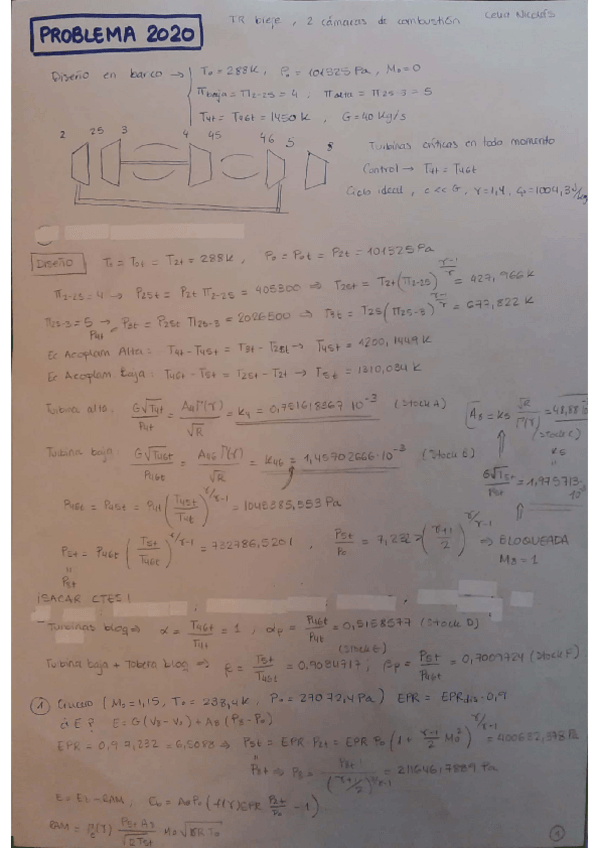 PROBLEMA 2020
TR bieje, 2 cámaras de combustión
Celia Nicolás
Diseño en banco → T₀ = 288K, P₀ = 101325 Pa, M₀ = 0
π baja = π2-25 = 4, π alta = π25-3 = 5
T4t = T46t = 1450 K, G = 40 Kg/s
2 25 3 4 45 46 5 8
Turbinas críticas en todo momento
Control → T4t = T46t
Ciclo ideal, c << G, γ = 1,4, Cp = 1004,3
DISEÑO
T₀ = T0t = T2t = 288K, P₀ = P0t = P2t = 101325 Pa
π2-25 = 4 → P25t = P2t π2-25 = 405300 ⇒ T25t = T2t (π2-25)^(γ-1/γ) = 427,966 K
π25-3 = 5 → P3t = P25t π25-3 = 2026500 ⇒ T3t = T25 (π25-3)^(γ-1/γ) = 677,822 K
P4t
Ec Acoplam Alta: T4t - T45t = T3t - T25t → T45t = 1200,1449 K
Ec Acoplam Baja: T46t - T5t = T25t - T2t → T5t = 1310,034 K
Turbina alta: G√T4t / P4t = A4 Γ(γ) / √R = K4 = 0,751618367 10⁻³ (Stock A)
A8 = K5 √R / Γ(γ) = 48,88
(Stock C)
K5
Turbina baja G√T46t / P46t = A46 Γ(γ) / √R = K46 = 1,45702666·10⁻³ (Stock B)
G√T5t / P5t = 1,975713·
P46t = P45t = P4t (T45t / T4t)^(γ/γ-1) = 1045385,553 Pa
P5t = P46t (T5t / T46t)^(γ/γ-1) = 732786,5201, P5t / P₀ = 7,232 > (γ+1 / 2)^(γ/γ-1) ⇒ BLOQUEADA
M8 = 1
P8t
¡SACAR CTES!
Turbinas bloq ⇒ α = T46t / T4t = 1, αp = P46t / P4t = 0,5158577 (Stock D)
(Stock E)
Turbina baja + Tobera bloq ⇒ β = T5t / T46t = 0,9034717; βp = P5t / P46t = 0,7009724 (Stock F)
① Crucero (M₀ = 1,15, T₀ = 238,4K, P₀ = 29072,4 Pa) EPR = EPRdis · 0,9
¿E? E = G(V8 - V₀) + A8(P8 - P₀)
EPR = 0,9 7,232 = 6,5093 ⇒ P5t = EPR P2t = EPR P₀ (1 + γ-1/2 M₀²)^(γ/γ-1) = 400632,378 Pa
P8t ⇒ P8 = P8t / (γ+1/2)^(γ/γ-1) = 211646,7889 Pa